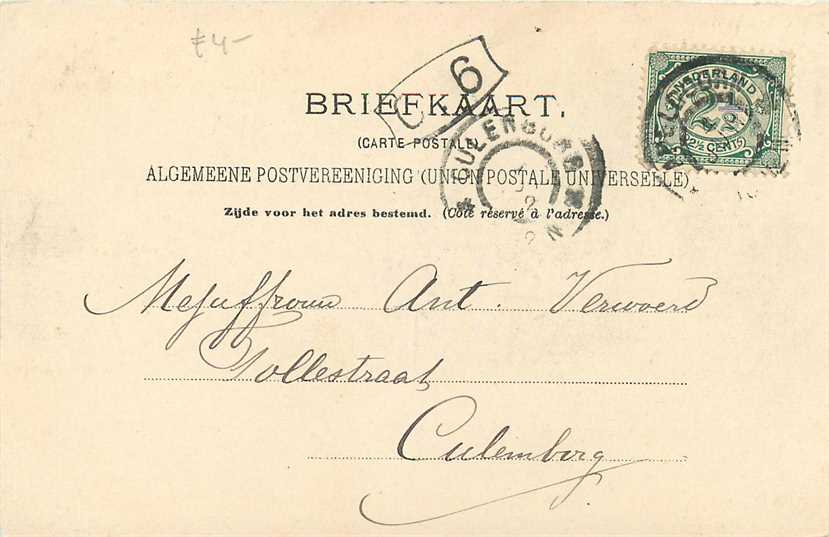 £4-
C. 6
NEDERLAND
2½ CENT
BRIEFKAART.
(CARTE POSTALE)
CULENBORG
ALGEMEENE POSTVEREENIGING (UNION POSTALE UNIVERSELLE)
Zijde voor het adres bestemd. (Côté réservé à l'adresse.)
Mejuffrouw Ant. Verwoerd
Tollestraat
Culemborg